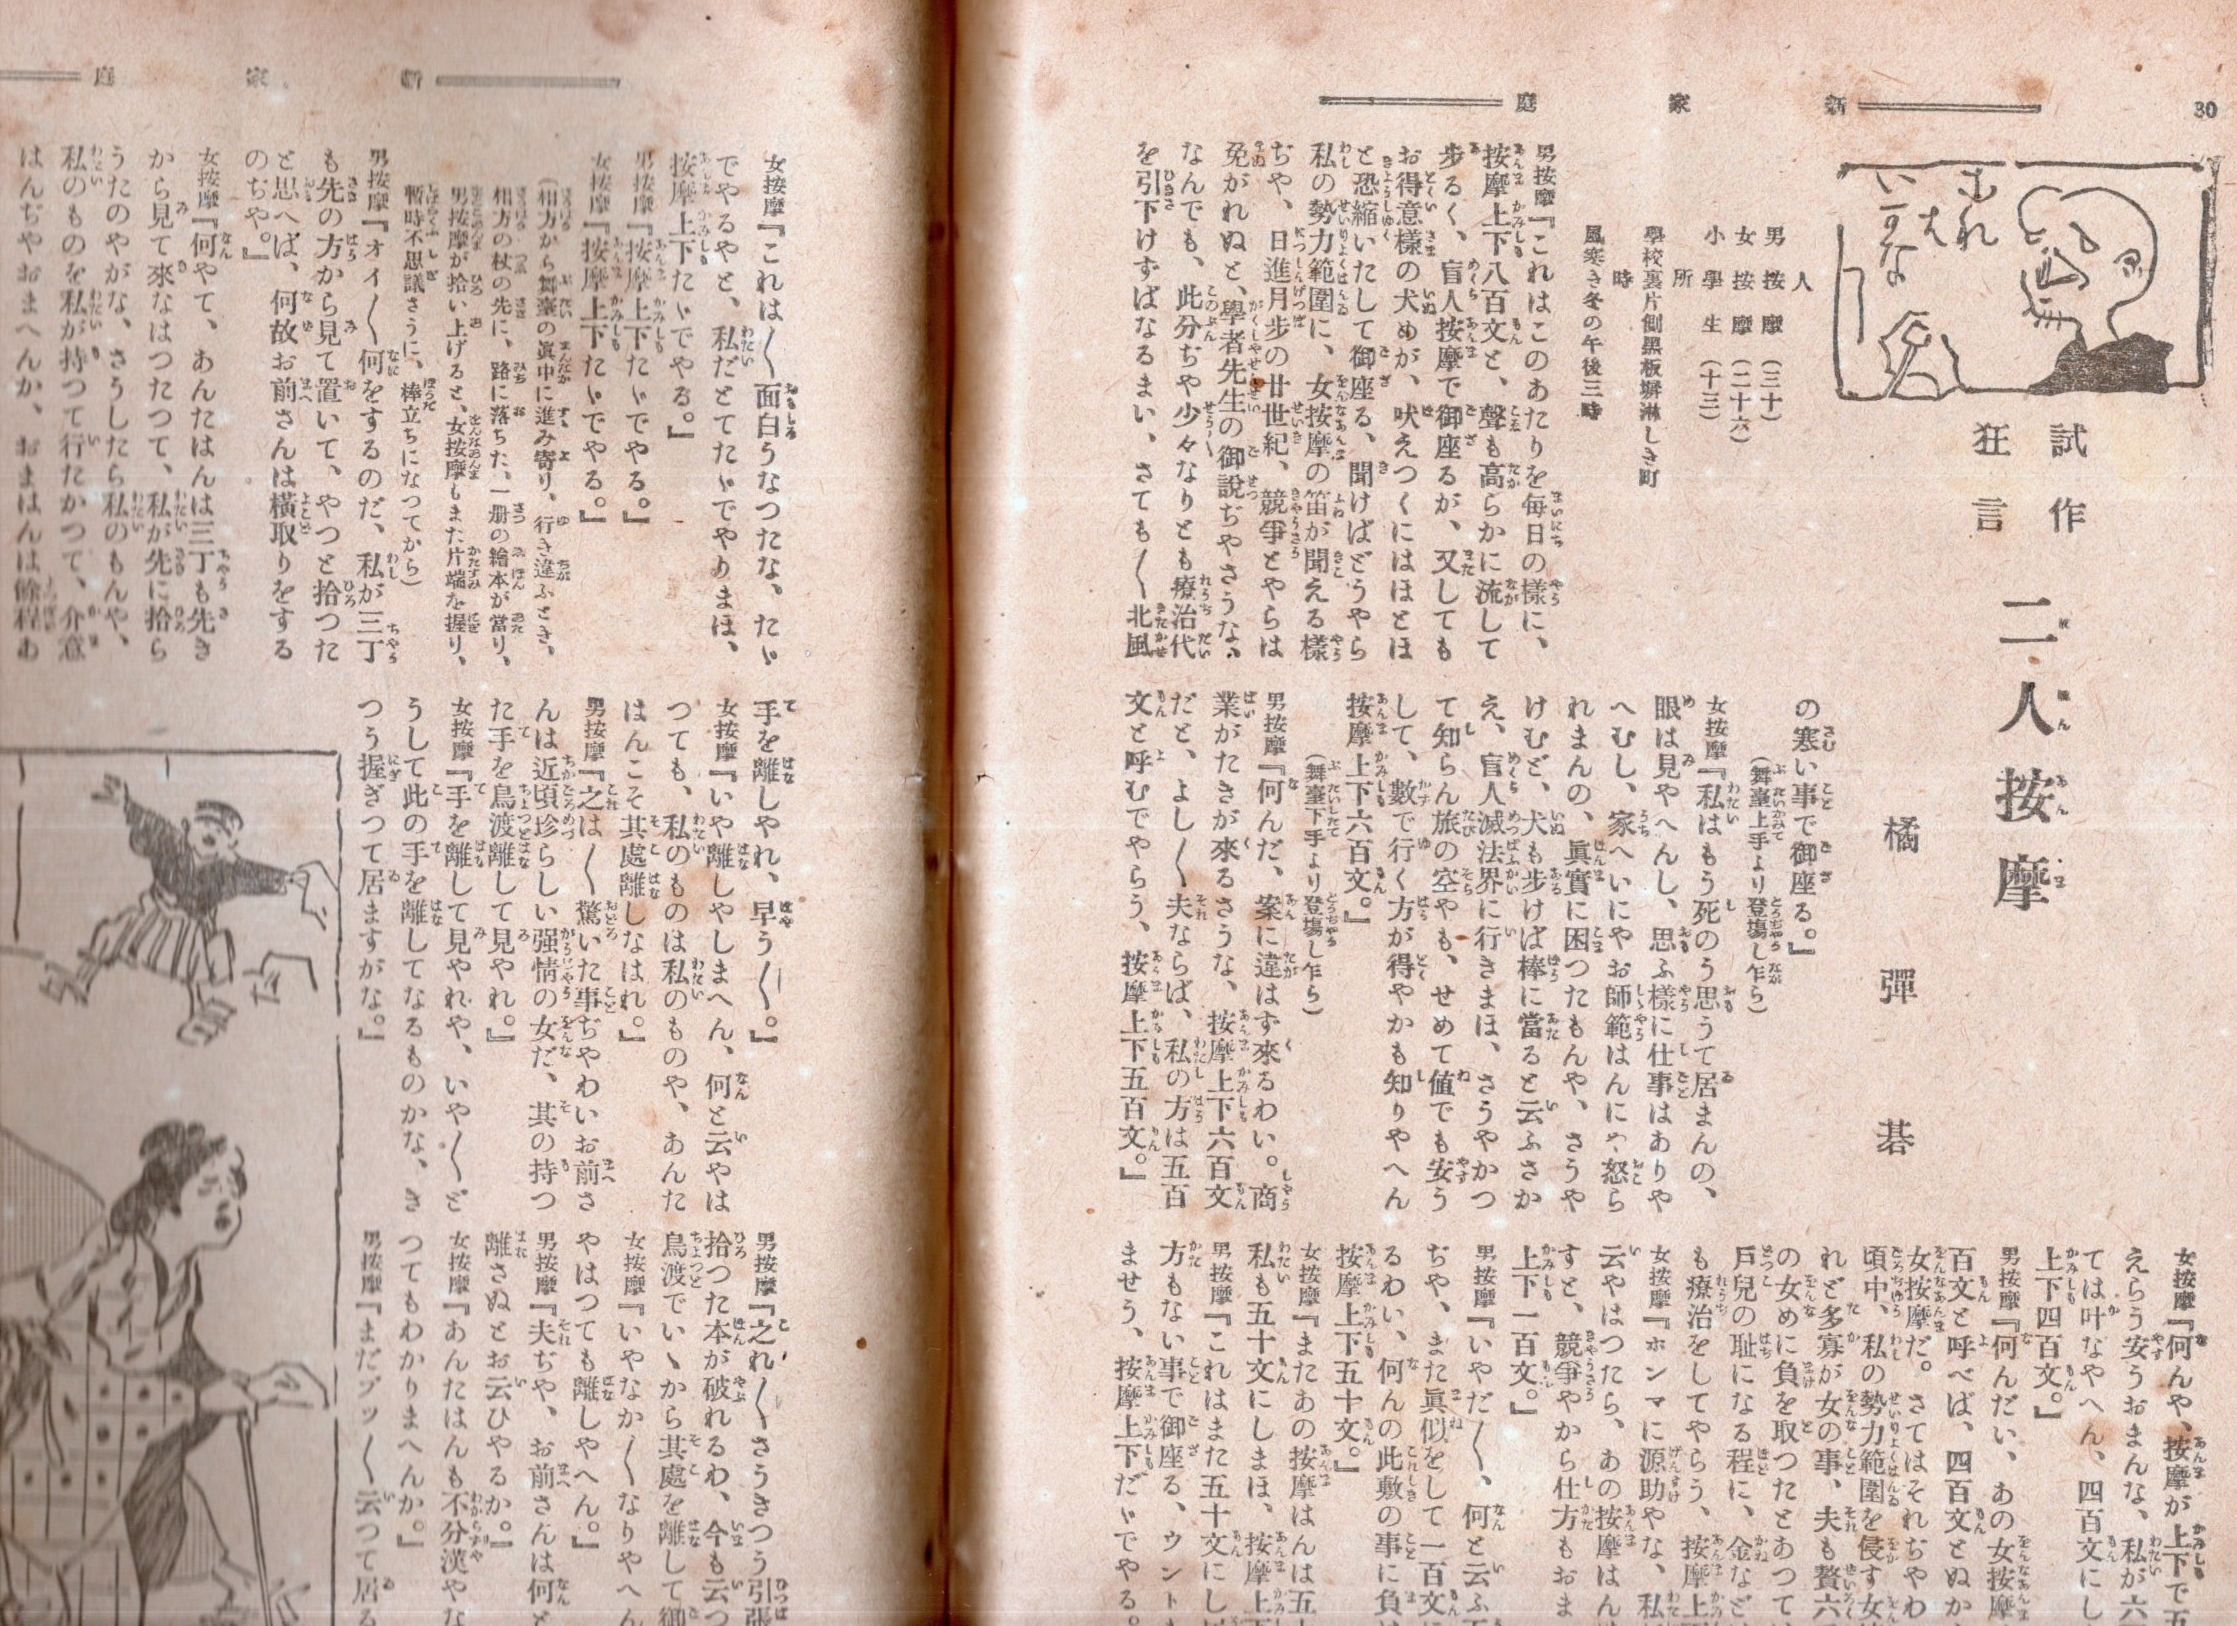 30
新家庭
試作
狂言
二人按摩
橘彈碁
人
男按摩（三十）
女按摩（二十六）
小學生（十三）
所
學校裏片側黒板塀淋しき町
時
風寒き冬の午後三時
男按摩『これはこのあたりを毎日の樣に、
按摩上下八百文と、聲も高らかに流して
歩るく、盲人按摩で御座るが、又しても
お得意樣の犬めが、吠えつくにはほとほ
と恐縮いたして御座る、聞けばどうやら
私の勢力範圍に、女按摩の笛が聞える樣
ぢや、日進月歩の廿世紀、競爭とやらは
免がれぬと、學者先生の御説ぢやさうな、
なんでも、此分ぢや少々なりとも療治代
を引下けずばなるまい、さても〳〵北風
の寒い事で御座る。』
（舞臺上手より登塲し乍ら）
女按摩『私はもう死のう思うて居まんの、
眼は見やへんし、思ふ樣に仕事はありや
へむし、家へいにやお師範はんにや怒ら
れまんの、眞實に困つたもんや、さうや
けむど、犬も歩けば棒に當ると云ふさか
え、盲人滅法界に行きまほ、さうやかつ
て知らん旅の空やも、せめて値でも安う
して、數で行く方が得やかも知りやへん
按摩上下六百文。』
（舞臺下手より登塲し乍ら）
男按摩『何んだ、案に違はず來るわい。商
業がたきが來るさうな、按摩上下六百文
だと、よし〳〵夫ならば、私の方は五百
文と呼むでやらう、按摩上下五百文。』
女按摩『何んや、按摩が上下で五
えらう安うおまんな、私が六
ては叶なやへん、四百文にし
上下四百文。』
男按摩『何んだい、あの女按摩
百文と呼べば、四百文とぬか
女按摩だ。さてはそれぢやわ
頃中、私の勢力範圍を侵す女
れど多寡が女の事、夫も贅六
の女めに負を取つたとあつて
戸兒の耻になる程に、金など
も療治をしてやらう、按摩上
女按摩『ホンマに源助やな、私
云やはつたら、あの按摩はん
すと、競爭やから仕方もおま
上下一百文。』
男按摩『いやだ〳〵、何んと云ふ
ぢや、また眞似をして一百文
るわい、何んの此敷の事に負
按摩上下五十文。』
女按摩『またあの按摩はんは五
私も五十文にしまほ、按摩上
男按摩『これはまた五十文にし
方もない事で御座る、ウント
ませう、按摩上下だゞでやる。
新家庭
女按摩『これは〳〵面白うなつたな、たゞ
でやるやと、私だとてたゞでやりまほ、
按摩上下たゞでやる。』
男按摩『按摩上下たゞでやる。』
女按摩『按摩上下たゞでやる。』
（相方から舞臺の眞中に進み寄り、行き違ふとき、
相方の杖の先に、路に落ちた、一册の繪本が當り、
男按摩が拾い上げると、女按摩もまた片端を握り、
暫時不思議さうに、棒立ちになつてから）
男按摩『オイ〳〵何をするのだ、私が三丁
も先の方から見て置いて、やつと拾つた
と思へば、何故お前さんは横取りをする
のぢや。』
女按摩『何やて、あんたはんは三丁も先き
から見て來なはつたつて、私が先に拾ら
うたのやがな、さうしたら私のもんや、
私のものを私が持つて行たかつて、介意
はんぢやおまへんか、おまはんは餘程あ
手を離しやれ、早う〳〵。』
女按摩『いや離しやしまへん、何と云やは
つても、私のものは私のものや、あんた
はんこそ其處離しなはれ。』
男按摩『之は〳〵驚いた事ぢやわいお前さ
んは近頃珍らしい强情の女だ、其の持つ
た手を鳥渡離して見やれ。』
女按摩『手を離して見やれや、いや〳〵ど
うして此の手を離してなるものかな、き
つう握ぎつて居ますがな。』
男按摩『之れ〳〵さうきつう引張
拾つた本が破れるわ、今も云つ
鳥渡でいゝから其處を離して御
女按摩『いやなか〳〵なりやへん
やはつても離しやへん。』
男按摩『夫ぢや、お前さんは何と
離さぬとお云ひやるか。』
女按摩『あんたはんも不分漢やな
つてもわかりまへんか。』
男按摩『まだブッ〳〵云つて居る